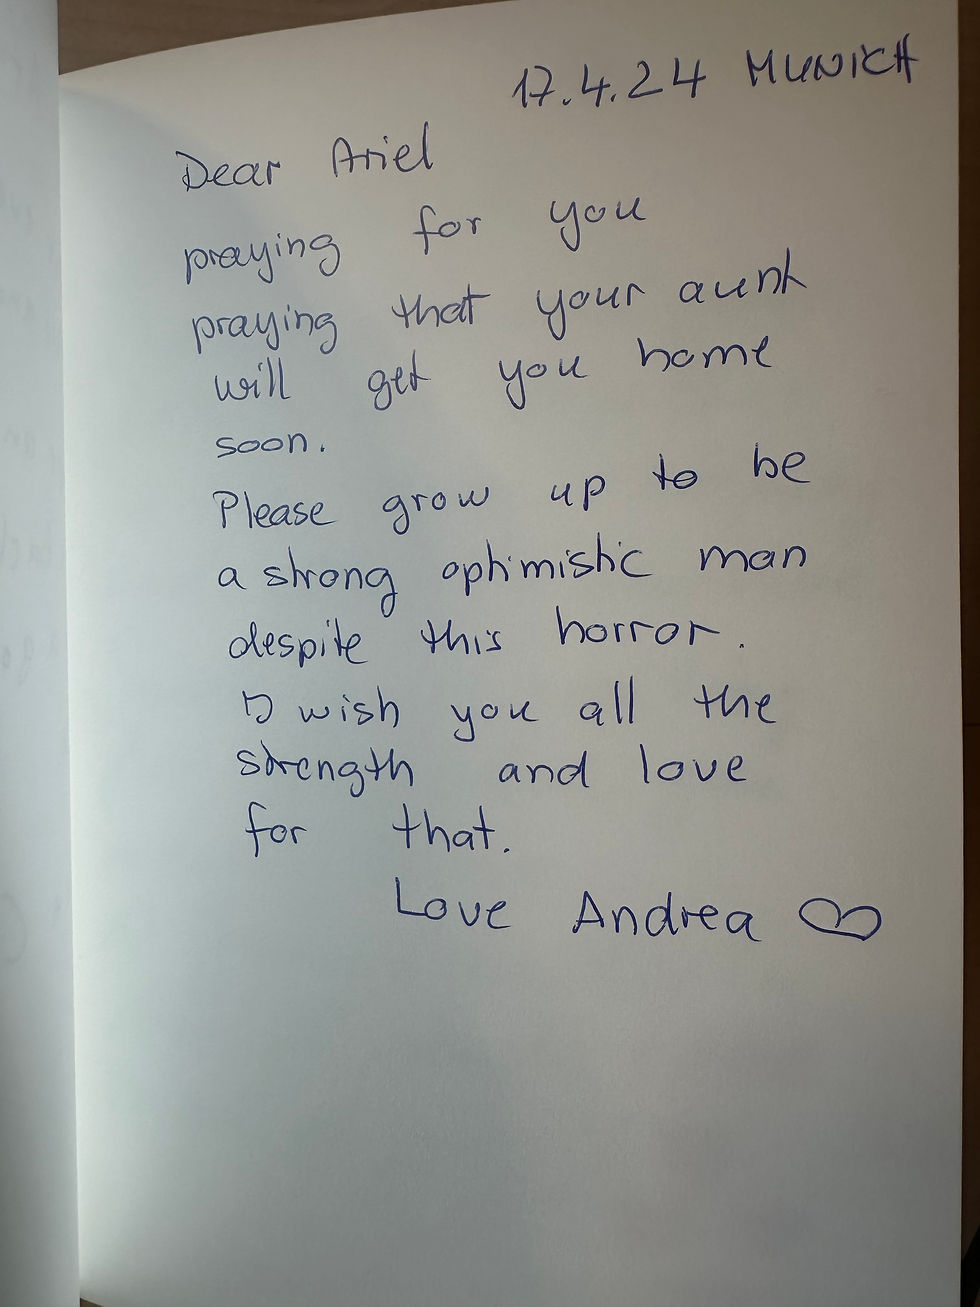 17.4.24 MUNICH
Dear Ariel
praying for you
praying that your aunt
will get you home
soon.
Please grow up to be
a strong optimistic man
despite this horror.
I wish you all the
strength and love
for that.
Love Andrea ♡